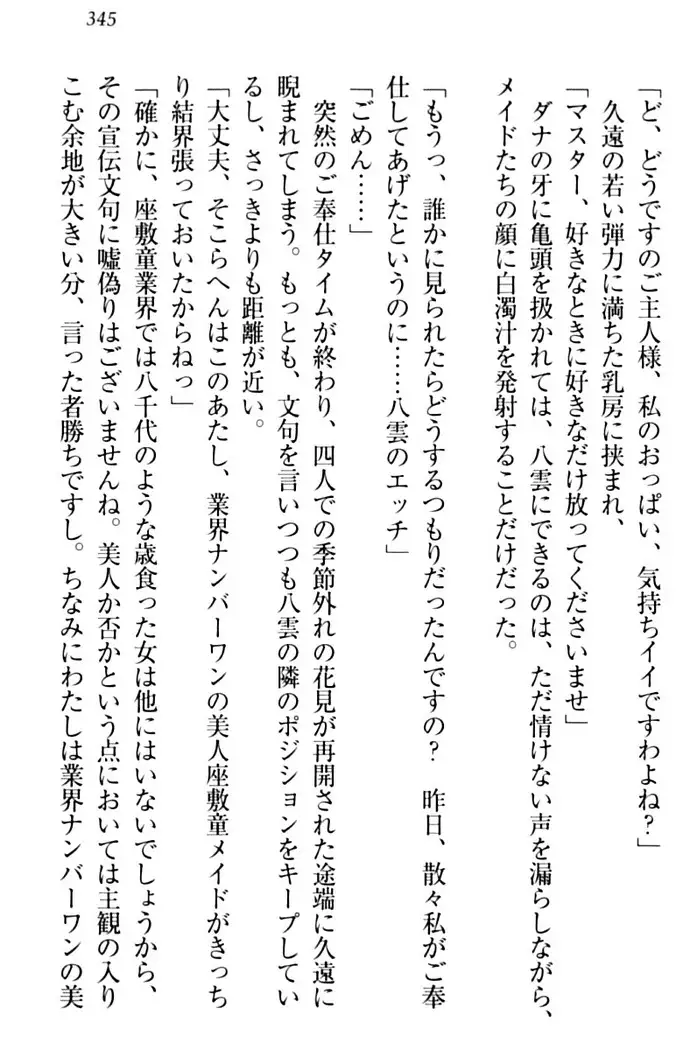 345
「ど、どうですのご主人様、私のおっぱい、気持ちイイですわよね？」
久遠の若い弾力に満ちた乳房に挟まれ、
「マスター、好きなときに好きなだけ放ってくださいませ」
ダナの牙に亀頭を扱かれては、八雲にできるのは、ただ情けない声を漏らしながら、
メイドたちの顔に白濁汁を発射することだけだった。
「もうっ、誰かに見られたらどうするつもりだったんですの？　昨日、散々私がご奉
仕してあげたというのに……八雲のエッチ」
「ごめん……」
突然のご奉仕タイムが終わり、四人での季節外れの花見が再開された途端に久遠に
睨まれてしまう。もっとも、文句を言いつつも八雲の隣のポジションをキープしてい
るし、さっきよりも距離が近い。
「大丈夫、そこらへんはこのあたし、業界ナンバーワンの美人座敷童メイドがきっち
り結界張っておいたからねっ」
「確かに、座敷童業界では八千代のような歳食った女は他にはいないでしょうから、
その宣伝文句に嘘偽りはございませんね。美人か否かという点においては主観の入り
こむ余地が大きい分、言った者勝ちですし。ちなみにわたしは業界ナンバーワンの美